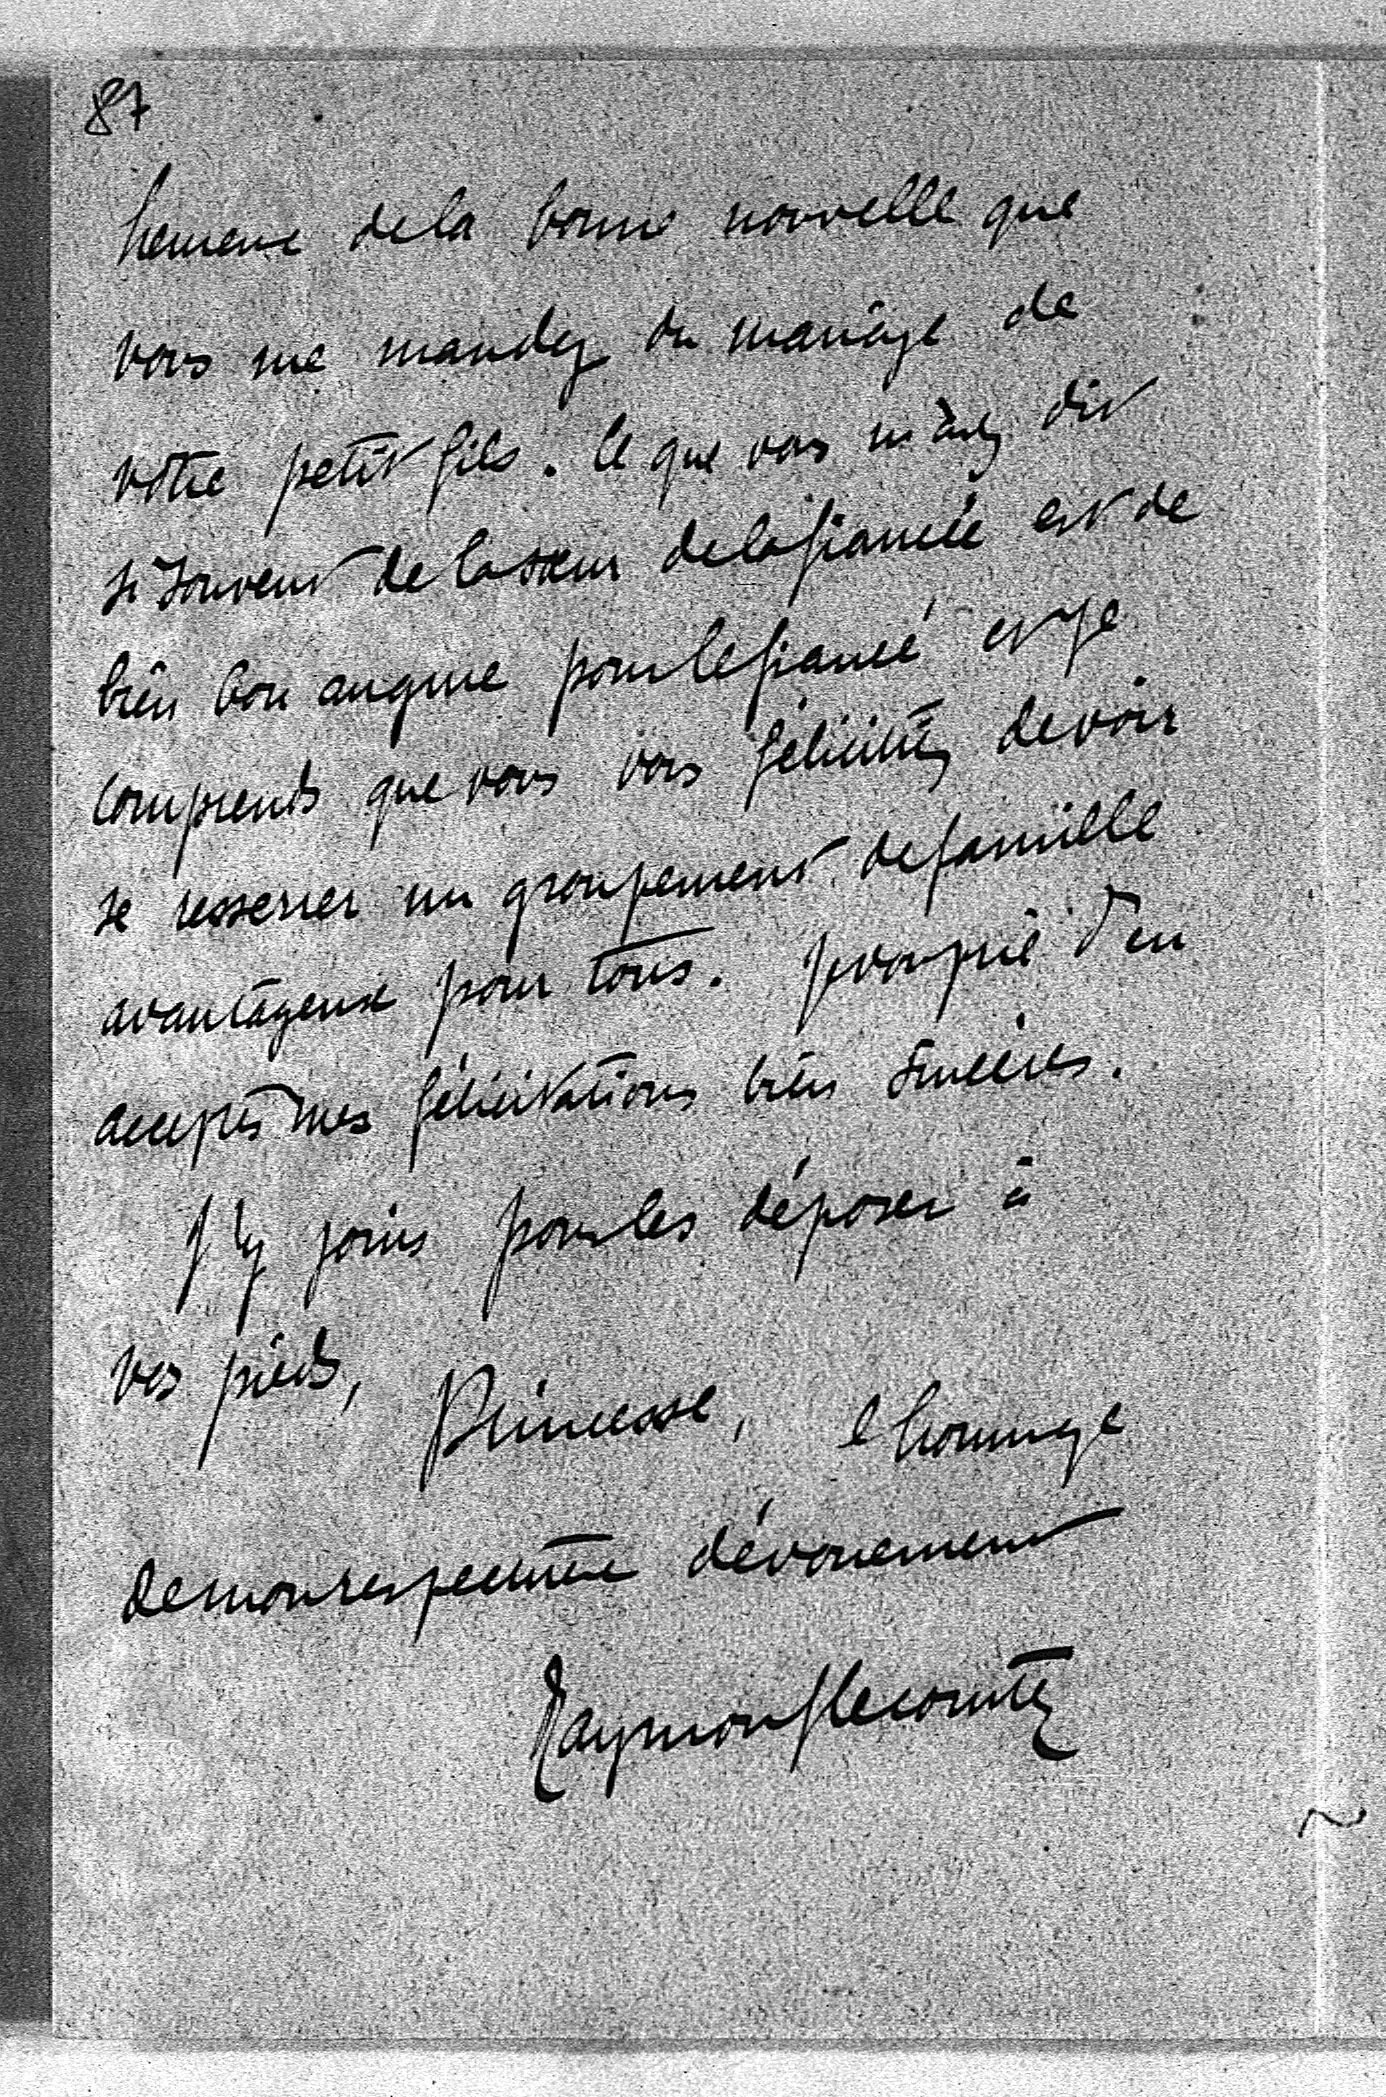 87
heureux de la bonne nouvelle que
vous me mandez du mariage de
votre petit fils. Ce que vous m'avez dit
si souvent de la sœur de la fiancée est de
bien bon augure pour le fiancé et je
comprends que vous vous félicitiez de voir
se resserrer un groupement de famille
avantageux pour tous. Je vous prie d'en
accepter mes félicitations bien sincères.
J'y joins pour les déposer à
vos pieds, Princesse, l'hommage
de mon respectueux dévouement
Raymond Lecomte